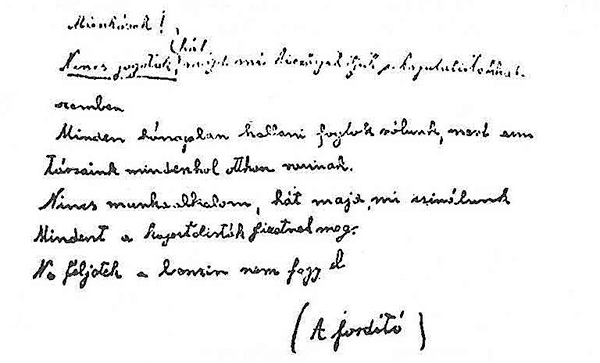 Munkások !
hát
Nincs jogotok, majd mi kierőszakoljuk a kapitalistákkal
szemben
Minden hónapban hallani fogtok rólunk, mert a mi
társaink mindenhol otthon vannak.
Nincs munkaalkalom, hát majd mi csinálunk
Mindent a kapitalisták fizetnek meg.
Ne féljetek a benzin nem fogy el
( A fordító )